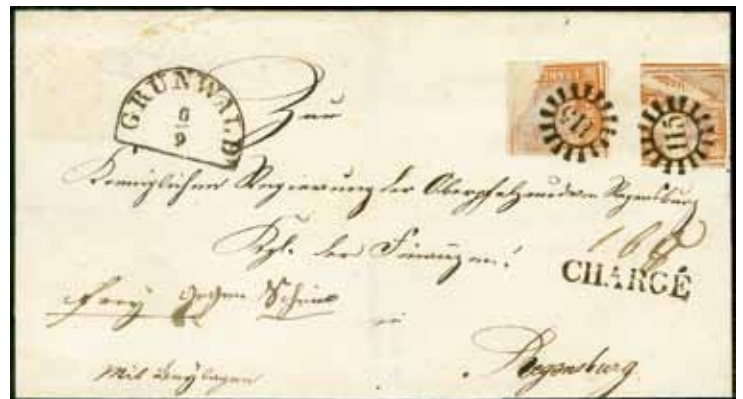 GRÜNWALD
6
9
115
115
Zur
Königlichen Regierung der Oberpfalz und von Regensburg
der Finanzen!
CHARGÉ
frey gegen Schein
in
Regensburg.
Mit Beylagen